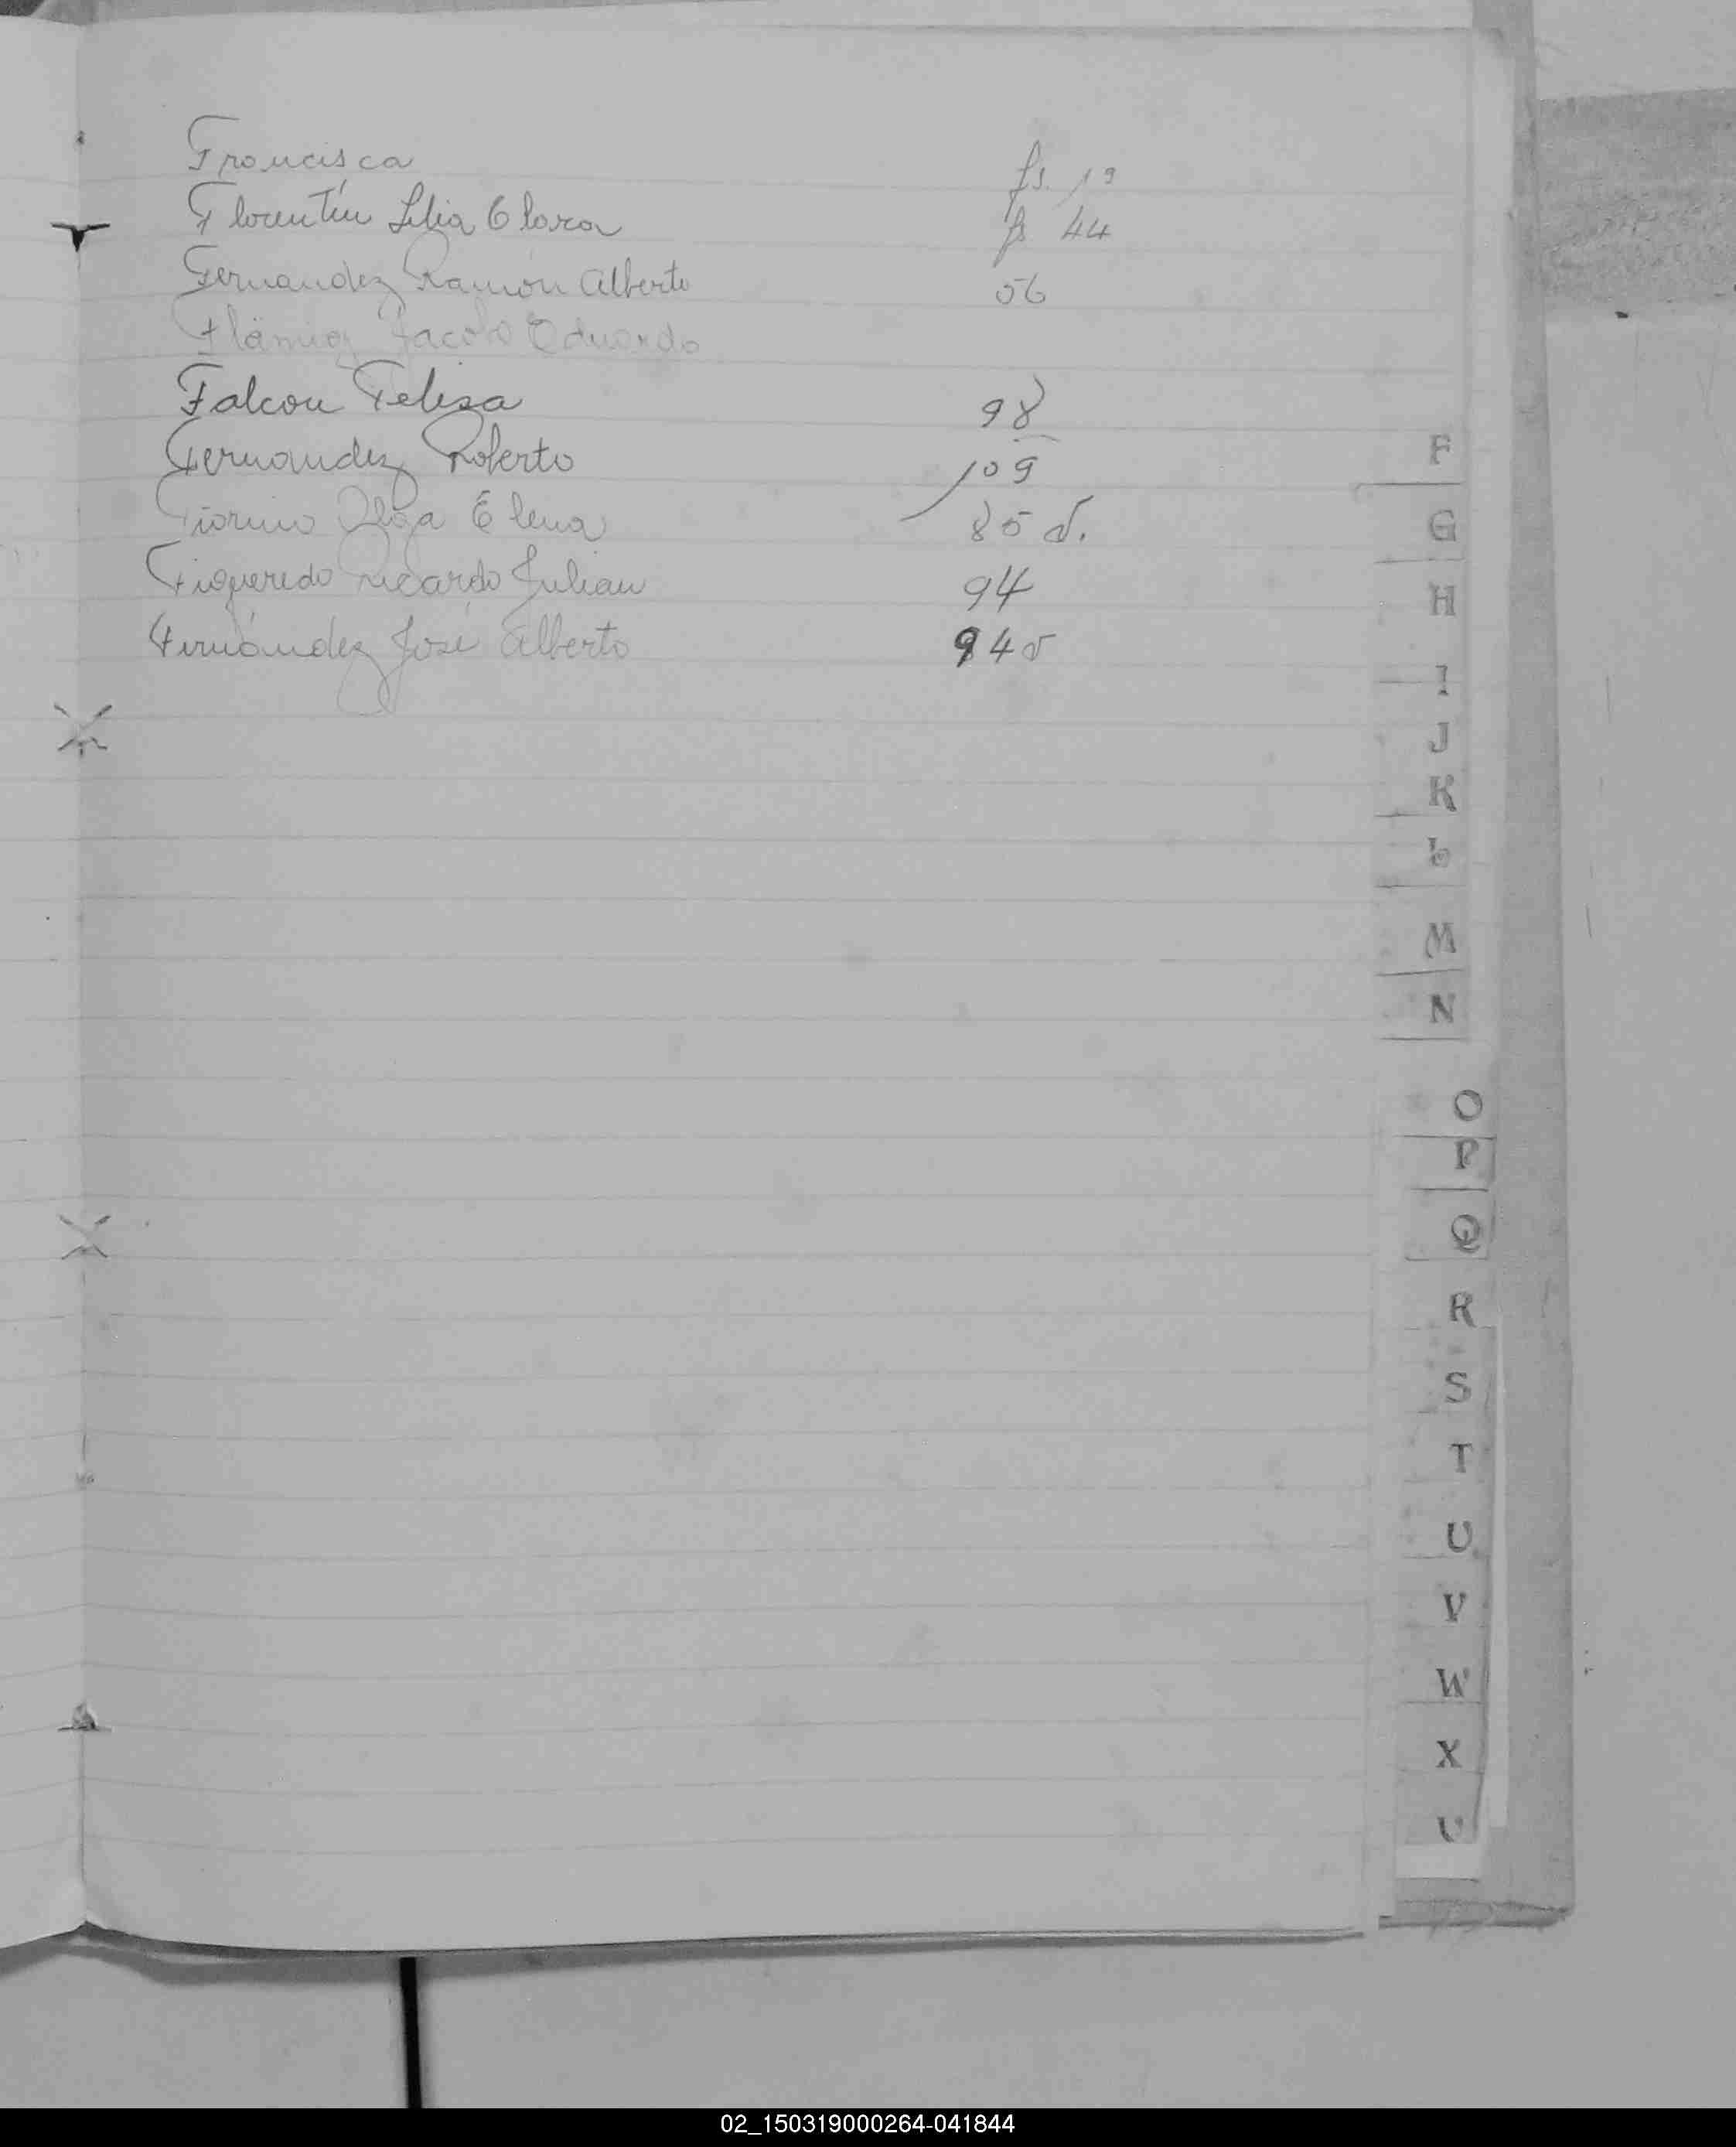 Francisca fs. 19
Florentín Lilia Clara fs 44
Fernandez Ramón Alberto 56
Jacobo Eduardo
Falcon Felisa 98
Fernandez Roberto 109
Fiorino Olga Elena 85 v.
Figueredo Ricardo Julian 94
Fernández José Alberto 94 v
F
G
H
I
J
K
L
M
N
O
P
Q
R
S
T
U
V
W
X
02_150319000264-041844